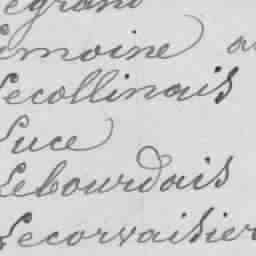 Legrand
Lemoine
Lecollinais
Luce
Lebourdais
Lecorvaisier